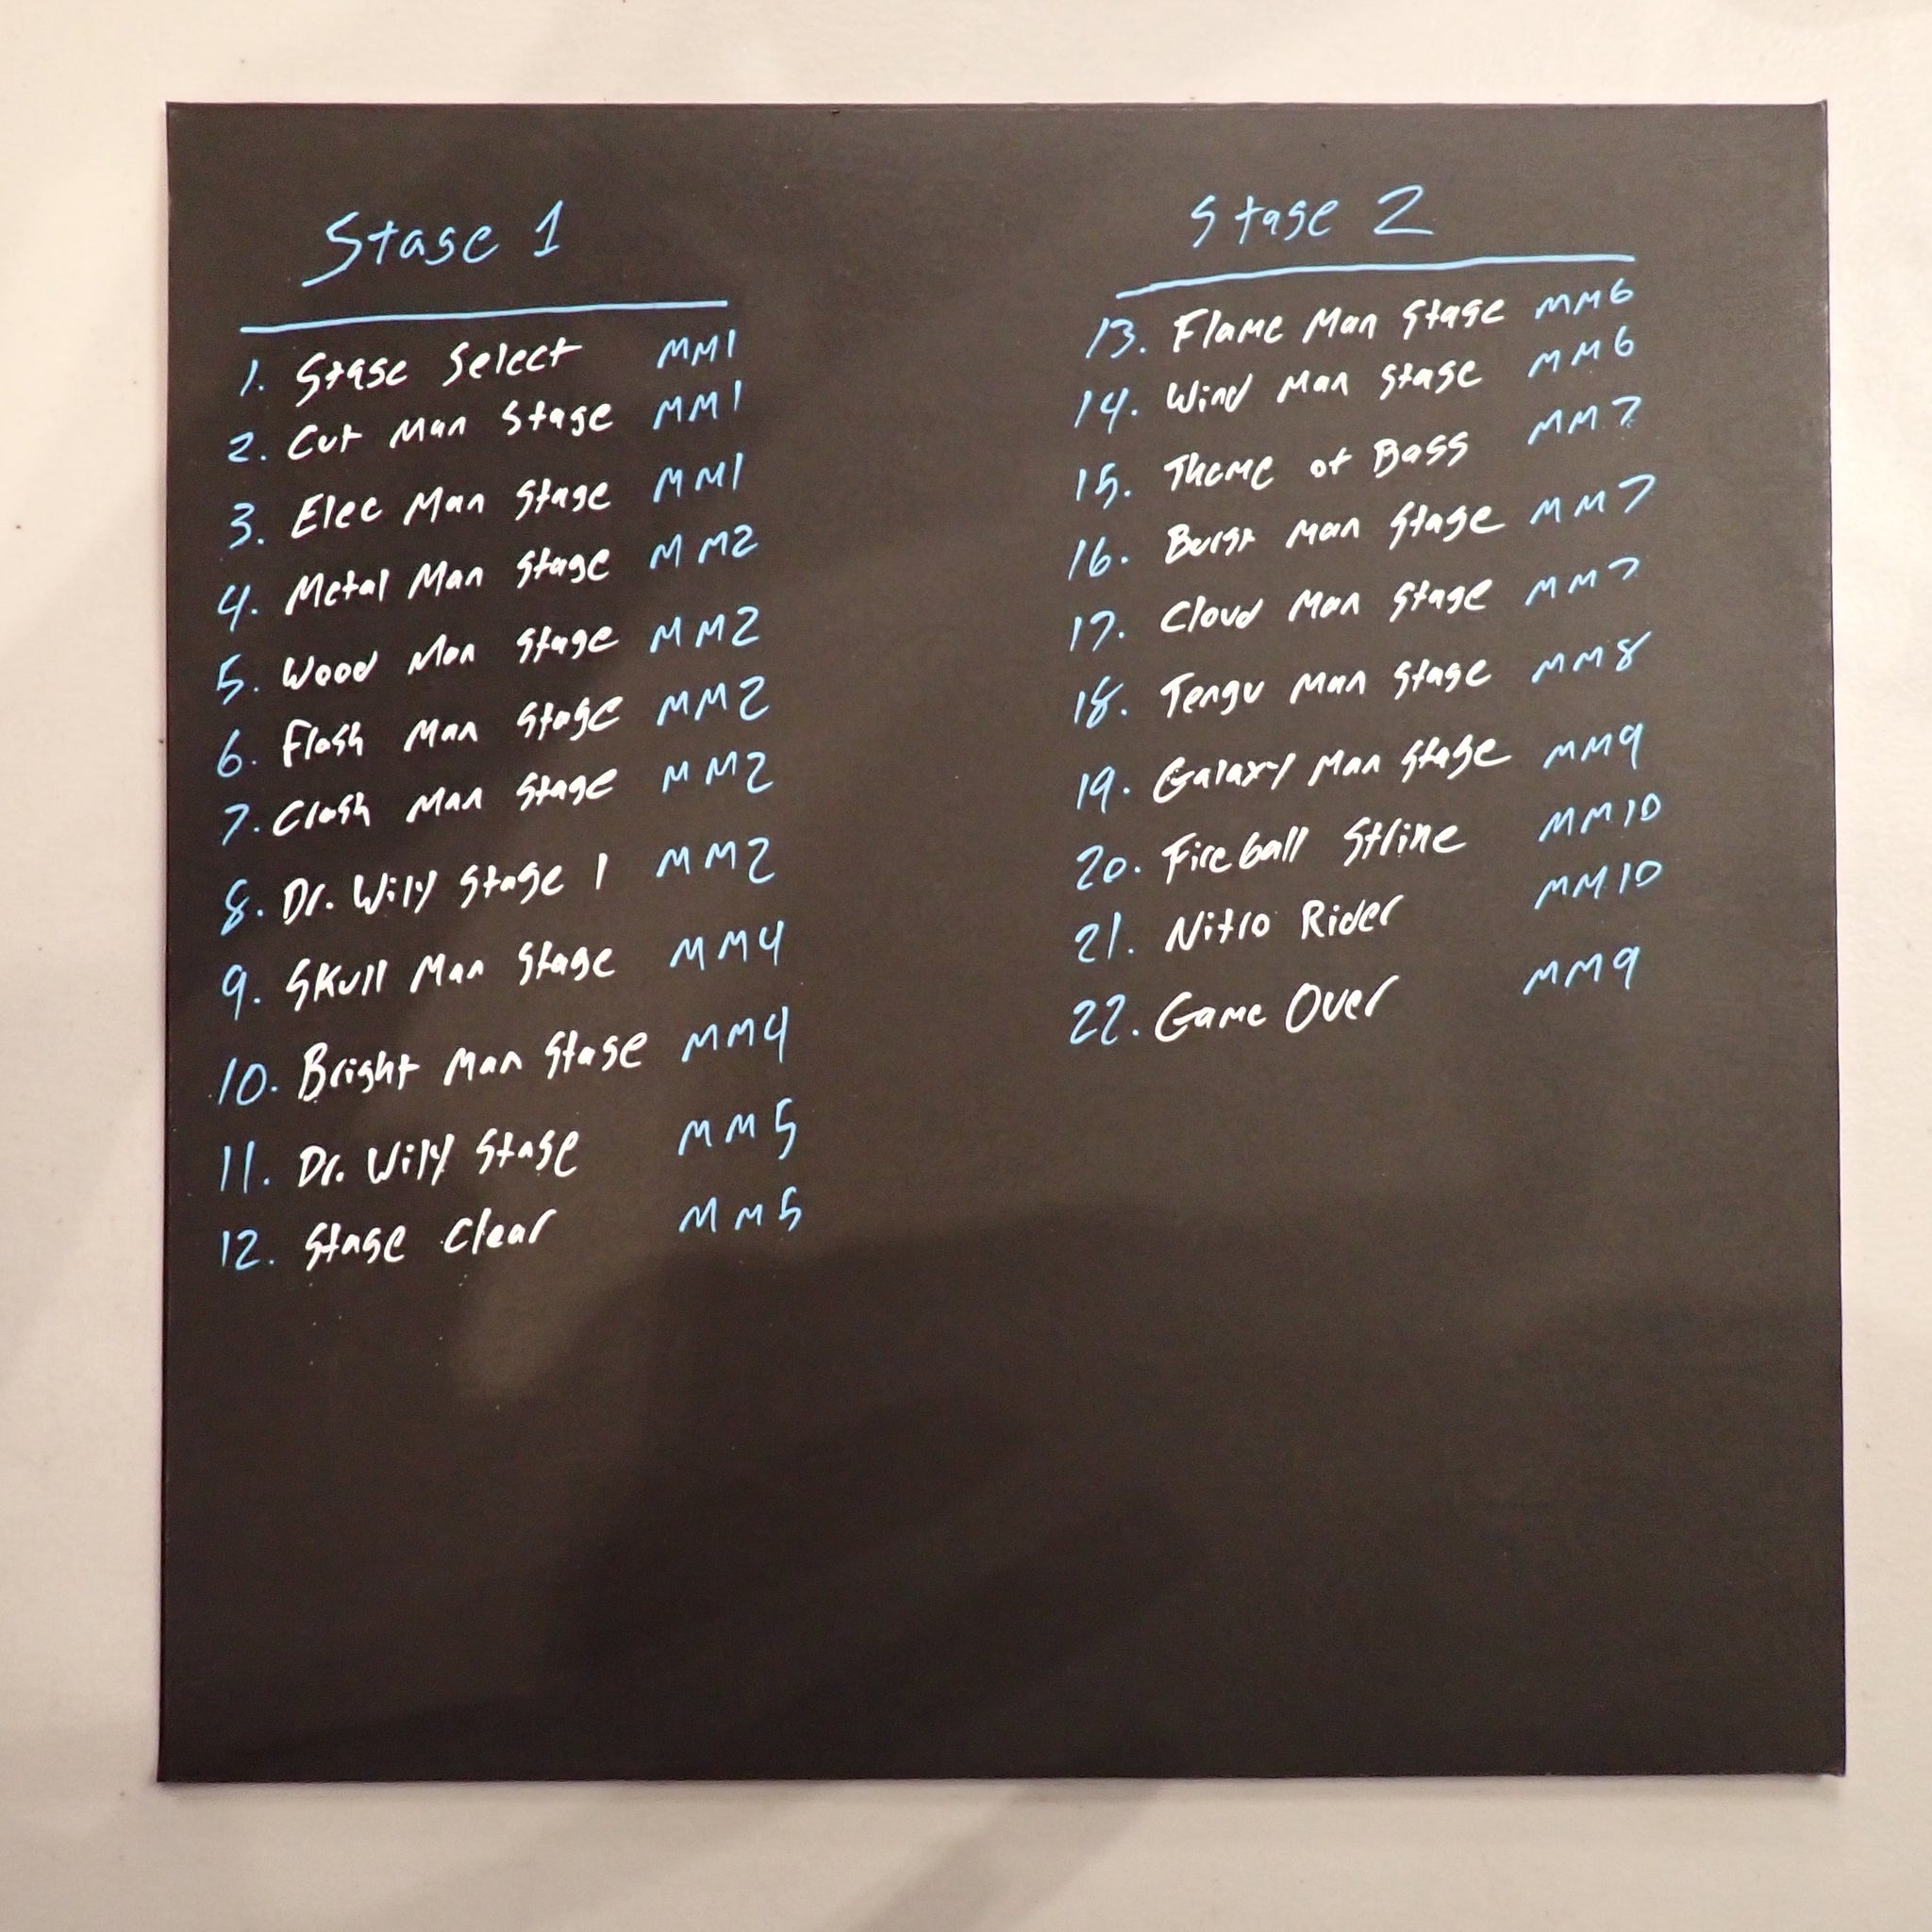 Stage 1
1. Stage Select MM1
2. Cut Man Stage MM1
3. Elec Man Stage MM1
4. Metal Man Stage MM2
5. Wood Man Stage MM2
6. Flash Man Stage MM2
7. Clash Man Stage MM2
8. Dr. Wily Stage 1 MM2
9. Skull Man Stage MM4
10. Bright Man Stage MM4
11. Dr. Wily Stage MM5
12. Stage Clear MM5
Stage 2
13. Flame Man Stage MM6
14. Wind Man Stage MM6
15. Theme of Bass MM7
16. Burst Man Stage MM7
17. Cloud Man Stage MM7
18. Tengu Man Stage MM8
19. Galaxy Man Stage MM9
20. Fireball Strike MM10
21. Nitro Rider MM10
22. Game Over MM9